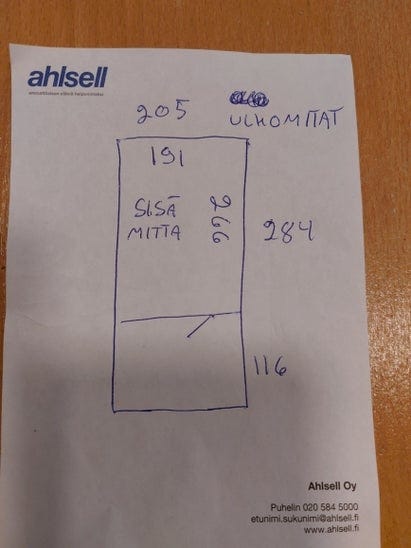 ahlsell
205
ULKOMITAT
191
SISÄ
MITTA
266
284
116
Ahlsell Oy
Puhelin 020 584 5000
etunimi.sukunimi@ahlsell.fi
www.ahlsell.fi